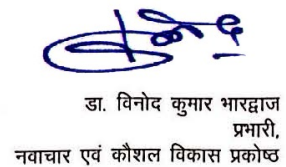 डा. विनोद कुमार भारद्वाज
प्रभारी,
नवाचार एवं कौशल विकास प्रकोष्ठ